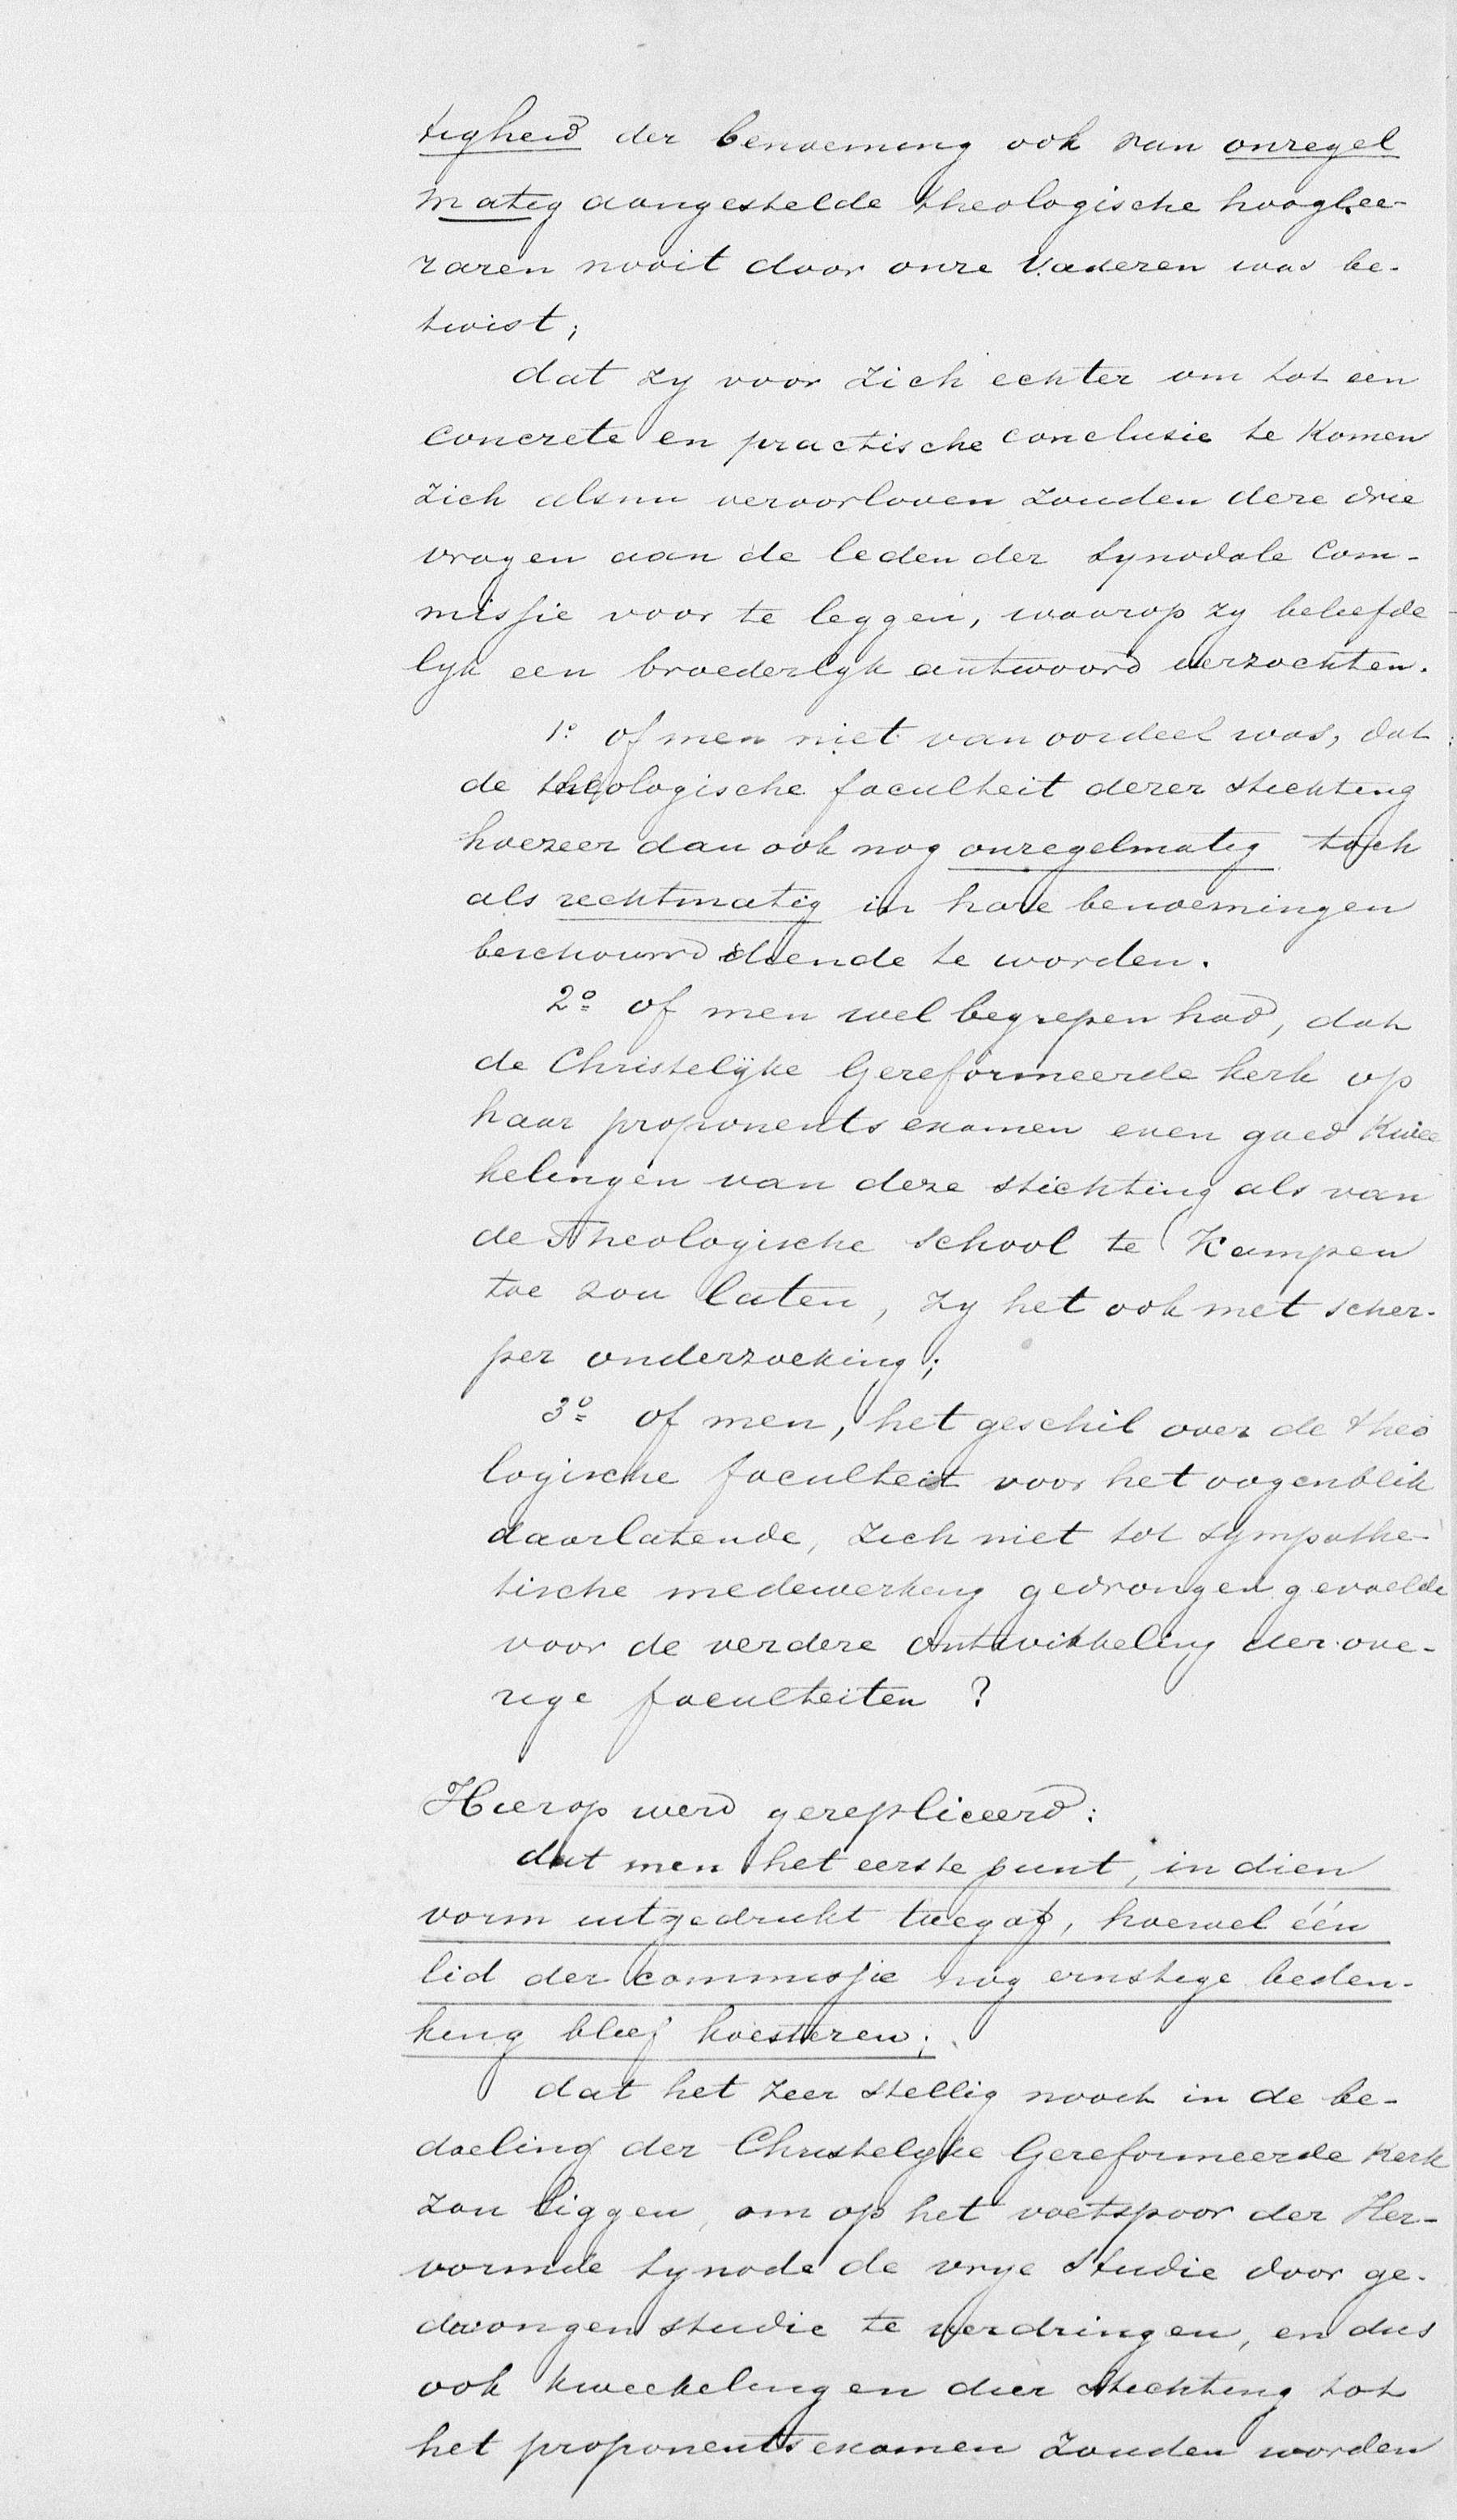 tigheid der benoeming ook van onregel
matig aangestelde theologische hooglee-
raren nooit door onze Vaderen was be-
twist;
dat zy voor zich echter om tot een
concrete en practische conclusie te komen
zich alsnu veroorloven zouden deze drie
vragen aan de leden der Synodale Com-
missie voor te leggen, waarop zy beleefde
lyk een broederlyk antwoord verzochten.
1o of men niet van oordeel was, dat
de theologische faculteit dezer stichting
hoezeer dan ook nog onregelmatig toch
als rechtmatig in hare benoemingen
beschouwd diende te worden.
2o of men wel begrepen had, dat
de Christelijke Gereformeerde kerk op
haar proponents examen even goed kwee
kelingen van deze stichting als van
de Theologische School te Kampen
toe zou laten, zy het ook met scher-
per onderzoeking;
3o of men, het geschil over de theo
logische faculteit voor het oogenblik
daarlatende, zich niet tot sympathe-
tische medewerking gedrongen gevoelde
voor de verdere ontwikkeling der ove-
rige faculteiten?
Hierop werd gerepliceerd:
dat men het eerste punt, in dien
vorm uitgedrukt toegaf, hoewel één
lid der commissie nog ernstige beden-
king bleef koesteren;
dat het zeer stellig nooit in de be-
doeling der Christelyke Gereformeerde Kerk
zou liggen, om op het voetspoor der Her-
vormde Synode de vrye studie door ge-
dwongen studie te verdringen, en dus
ook kweekelingen dier Stichting tot
het proponents examen zouden worden